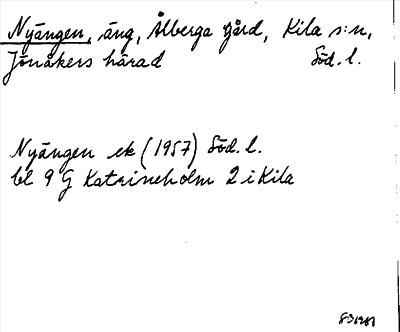 Nyängen, äng, Ålberga gård, Kila s:n,
Jönåkers härad Söd. l.
Nyängen ek (1957) Söd. l.
bl 9 G Katrineholm 2 i Kila